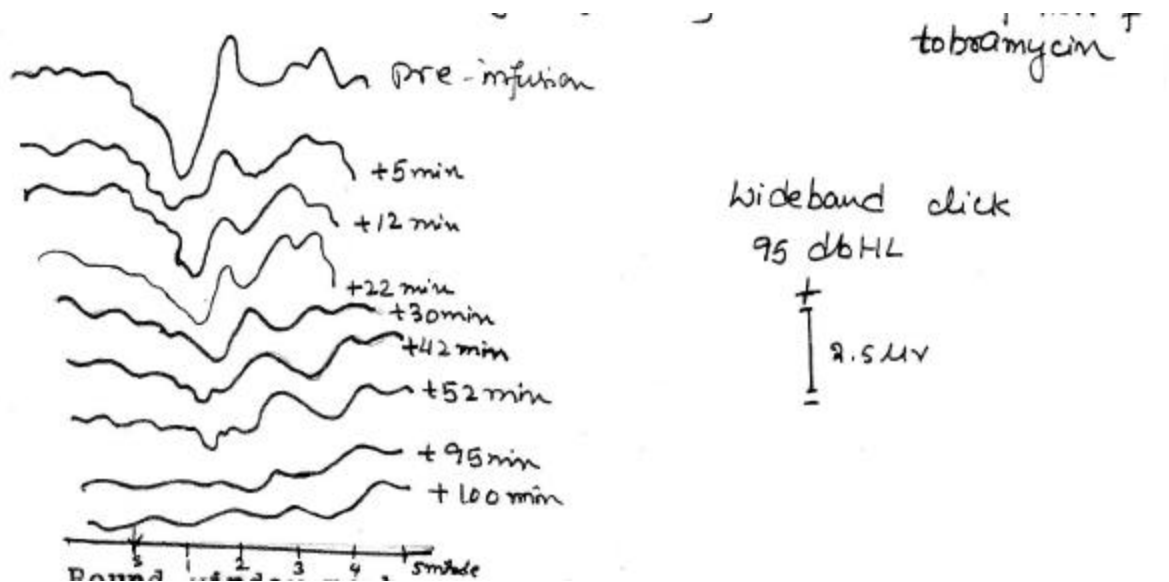 tobramycin
pre-infusion
+5 min
+12 min
+22 min
+30min
+42 min
+52 min
+95min
+100 min
Wideband click
95 dbHL
+
2.5 μv
-
s 1 2 3 4 5
Round window